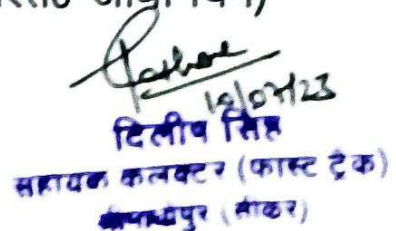 10/07/23
दिलीप सिंह
सहायक कलक्टर (फास्ट ट्रेक)
(सीकर)